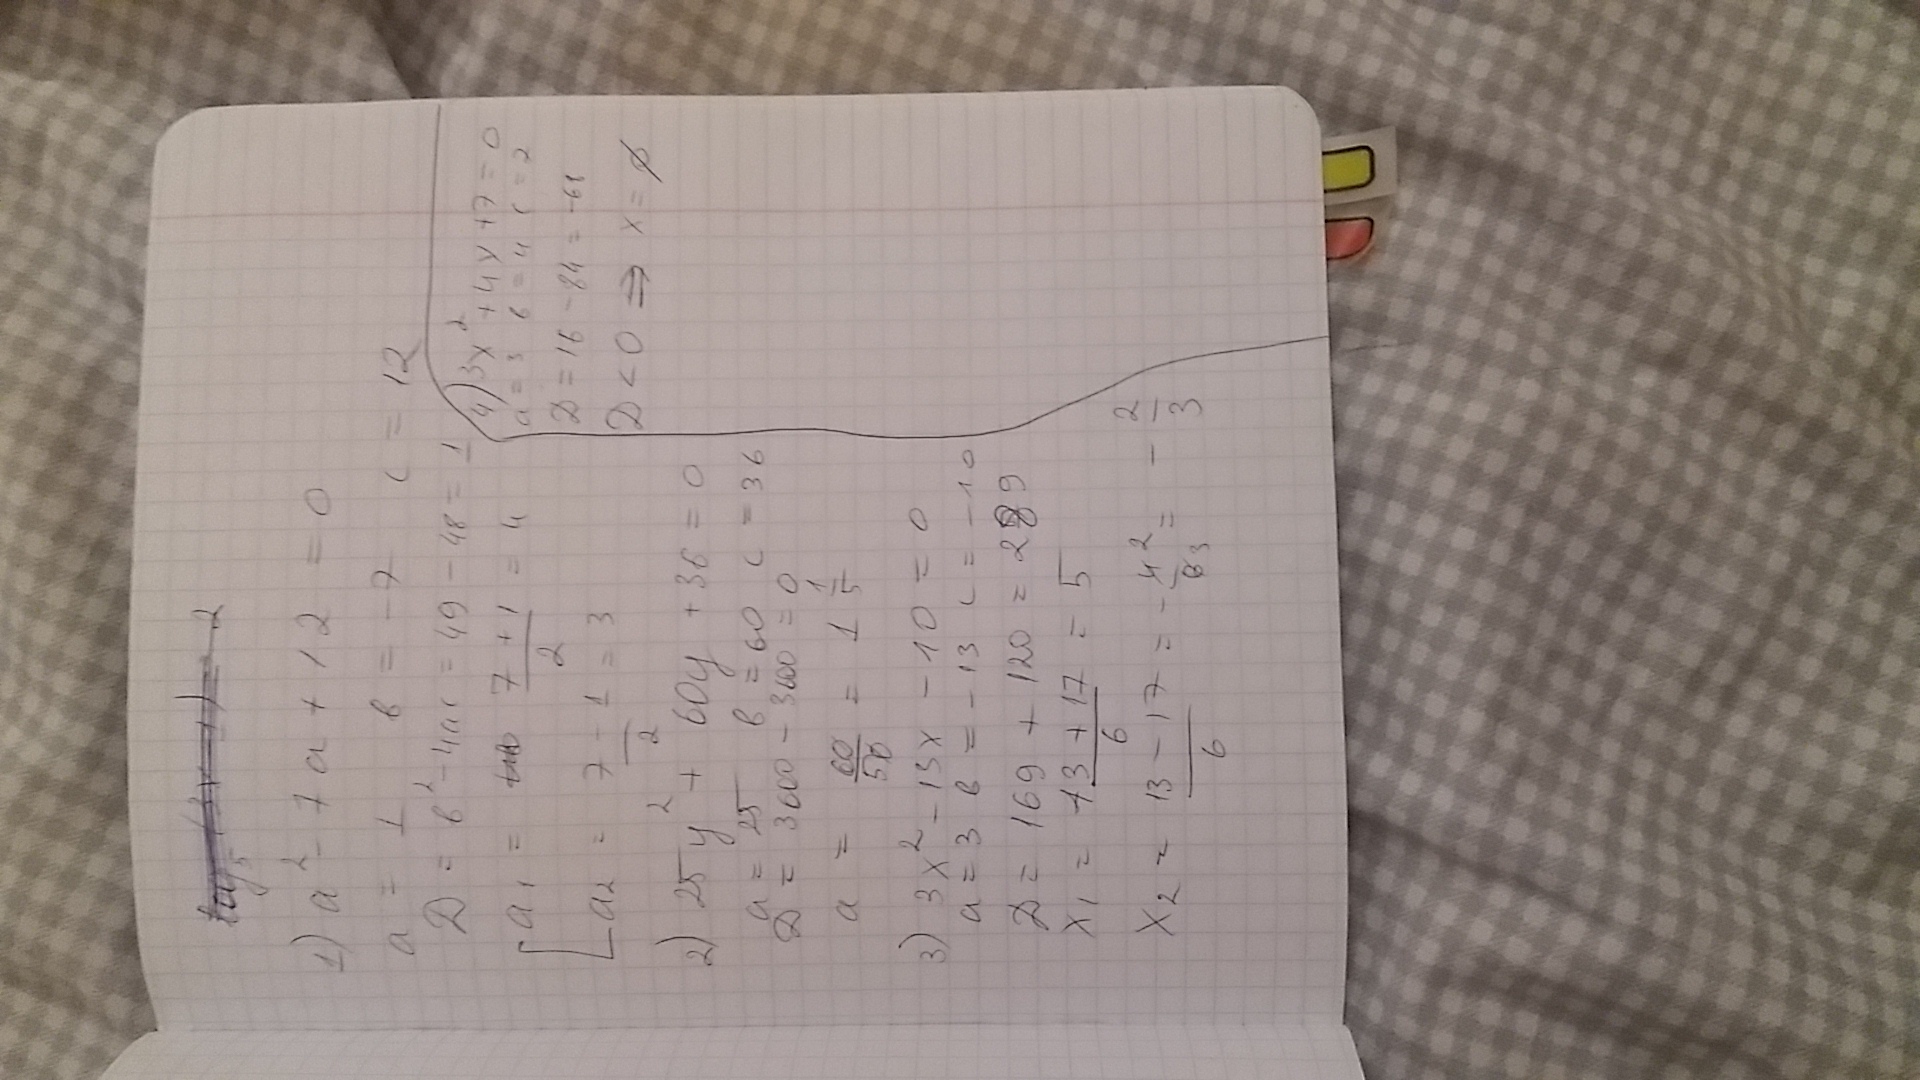 1) a² - 7a + 12 = 0
a = 1 в = -7 c = 12
D = в² - 4ac = 49 - 48 = 1
a₁ = 7 + 1 / 2 = 4
a₂ = 7 - 1 / 2 = 3
2) 25y² + 60y + 36 = 0
a = 25 в = 60 c = 36
D = 3600 - 3600 = 0
a = 60/50 = 1 1/5
3) 3x² - 13x - 10 = 0
a = 3 в = -13 c = -10
D = 169 + 120 = 289
x₁ = 13 + 17 / 6 = 5
x₂ = 13 - 17 / 6 = - 4²/6₃ = - 2/3
4) 3x² + 4x + 7 = 0
a = 3 в = 4 c = 7
D = 16 - 84 = -68
D < 0 ⇒ x = ∅